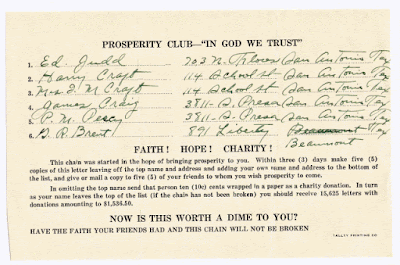 PROSPERITY CLUB—"IN GOD WE TRUST"
1. Ed. Judd 703 N. Flores San Antonio Tex
2. Harry Craft 114 School St San Antonio Tex
3. Mrs F. M Craft 114 School St San Antonio Tex
4. James Craig 3811-S. Presa San Antonio Tex
5. P. M. 3811-S. Presa San Antonio Tex
6. B. R. Brent 891 Liberty Beaumont Tex
Beaumont
FAITH! HOPE! CHARITY!
This chain was started in the hope of bringing prosperity to you. Within three (3) days make five (5)
copies of this letter leaving off the top name and address and adding your own name and address to the bottom of
the list, and give or mail a copy to five (5) of your friends to whom you wish prosperity to come.
In omitting the top name send that person ten (10c) cents wrapped in a paper as a charity donation. In turn
as your name leaves the top of the list (if the chain has not been broken) you should receive 15,625 letters with
donations amounting to $1,536.50.
NOW IS THIS WORTH A DIME TO YOU?
HAVE THE FAITH YOUR FRIENDS HAD AND THIS CHAIN WILL NOT BE BROKEN
TALLEY PRINTING CO